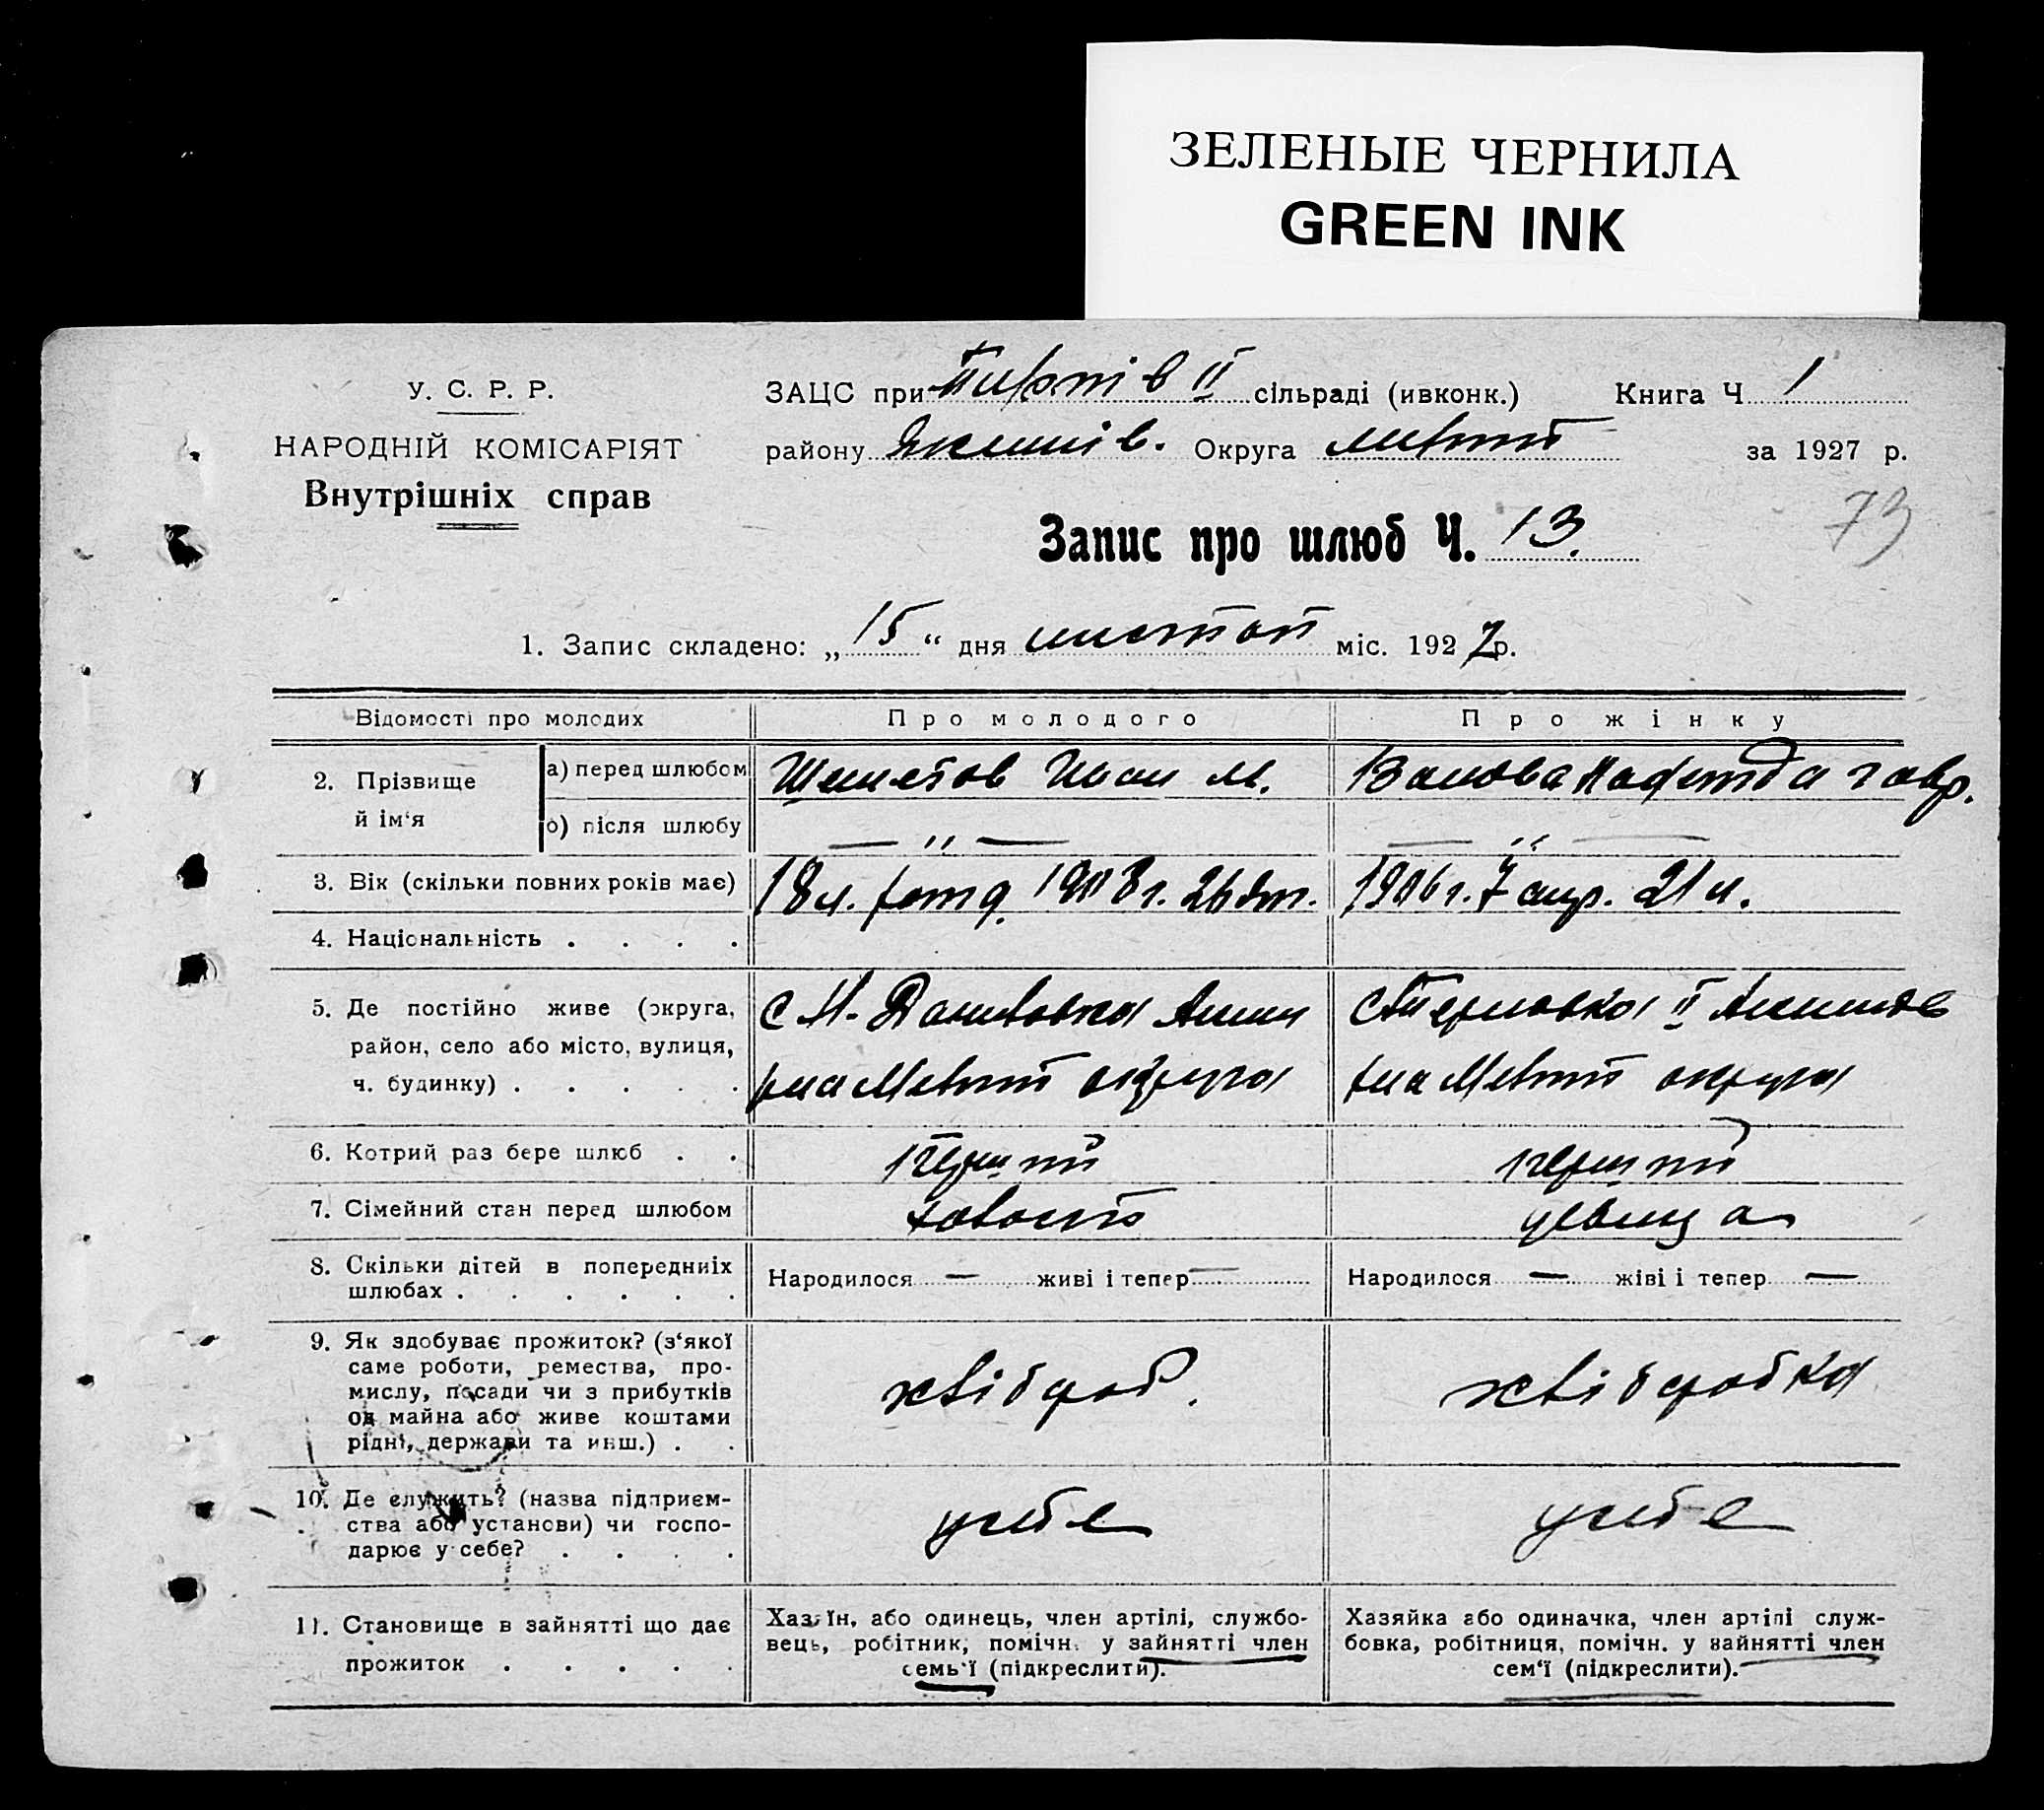 ЗЕЛЕНЫЕ ЧЕРНИЛА
GREEN INK
У. С. Р. Р.
НАРОДНІЙ КОМІСАРІЯТ
Внутрішніх справ
ЗАЦС при II сільраді (ивконк.) Книга Ч 1
району Якимів. Округа Меліт за 1927 р.
73
Запис про шлюб Ч. 13.
1. Запис складено: „ 15 “ дня листоп міс. 1927 р.
Відомості про молодих Про молодого Про жінку
2. Прізвище й ім‘я
а) перед шлюбом Иван М. Гавр.
б) після шлюбу — " — — " —
3. Вік (скільки повних років має) 18 л. 1908 г. 26 1906 г. 7 апр. 21 л.
4. Національність . . . .
5. Де постійно живе (округа, район, село або місто, вулиця, ч. будинку) . . . . .
с М. Даниловка Аким
р-на Меліт округа
с II Акимов
р-на Меліт округа
6. Котрий раз бере шлюб . . перший перший
7. Сімейний стан перед шлюбом девица
8. Скільки дітей в попередниіх шлюбах . . . . . .
Народилося — живі і тепер — Народилося — жіві і тепер —
9. Як здобуває прожиток? (з‘якої
саме роботи, ремества, про-
мислу, посади чи з прибутків
од майна або живе коштами
рідні, держави та инш.) . .
хлібороб. хліборобка
10. Де служить? (назва підприєм-
ства або установи) чи госпо-
дарює у себе? . . . .
у себе у себе
11. Становище в зайнятті що дає
прожиток . . . . .
Хазяїн, або одинець, член артілі, службо-
вець, робітник, помічн. у зайнятті член
семь‘ї (підкреслити).
Хазяйка або одиначка, член артілі служ-
бовка, робітниця, помічн. у зайнятті член
сем‘ї (підкреслити).